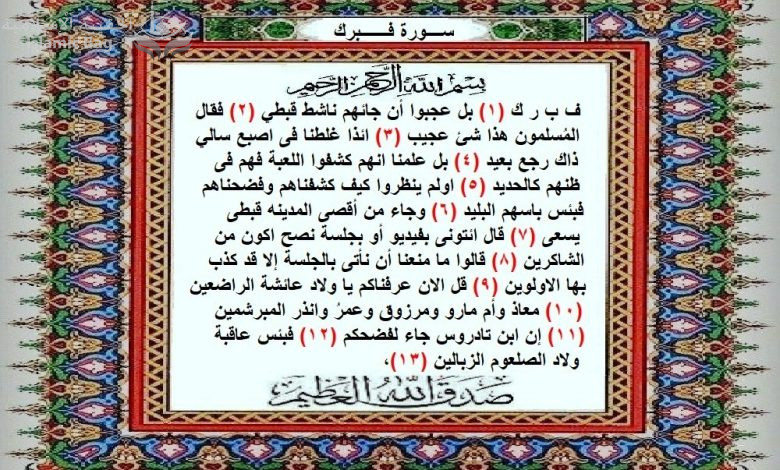 ســورة فـــبرك
بسم الله الرحمن الرحيم
ف ب ر ك (١) بل عجبوا أن جائهم ناشط قبطي (٢) فقال
المُسلمون هذا شئ عجيب (٣) ائذا غلطنا فى اصبع سالي
ذاك رجع بعيد (٤) بل علمنا انهم كشفوا اللعبة فهم فى
ظنهم كالحديد (٥) اولم ينظروا كيف كشفناهم وفضحناهم
فبئس باسهم البليد (٦) وجاء من أقصى المدينه قبطى
يسعى (٧) قال ائتونى بفيديو أو بجلسة نصح اكون من
الشاكرين (٨) قالوا ما منعنا أن نأتى بالجلسة إلا قد كذب
بها الاولوين (٩) قل الان عرفناكم يا ولاد عائشة الراضعين
(١٠) معاذ وأم مارو ومرزوق وعمرُ وانذر المبرشمين
(١١) إن ابن تادروس جاء لفضحكم (١٢) فبئس عاقبة
ولاد الصلعوم الزبالين (١٣)،
صدق الله العظيم